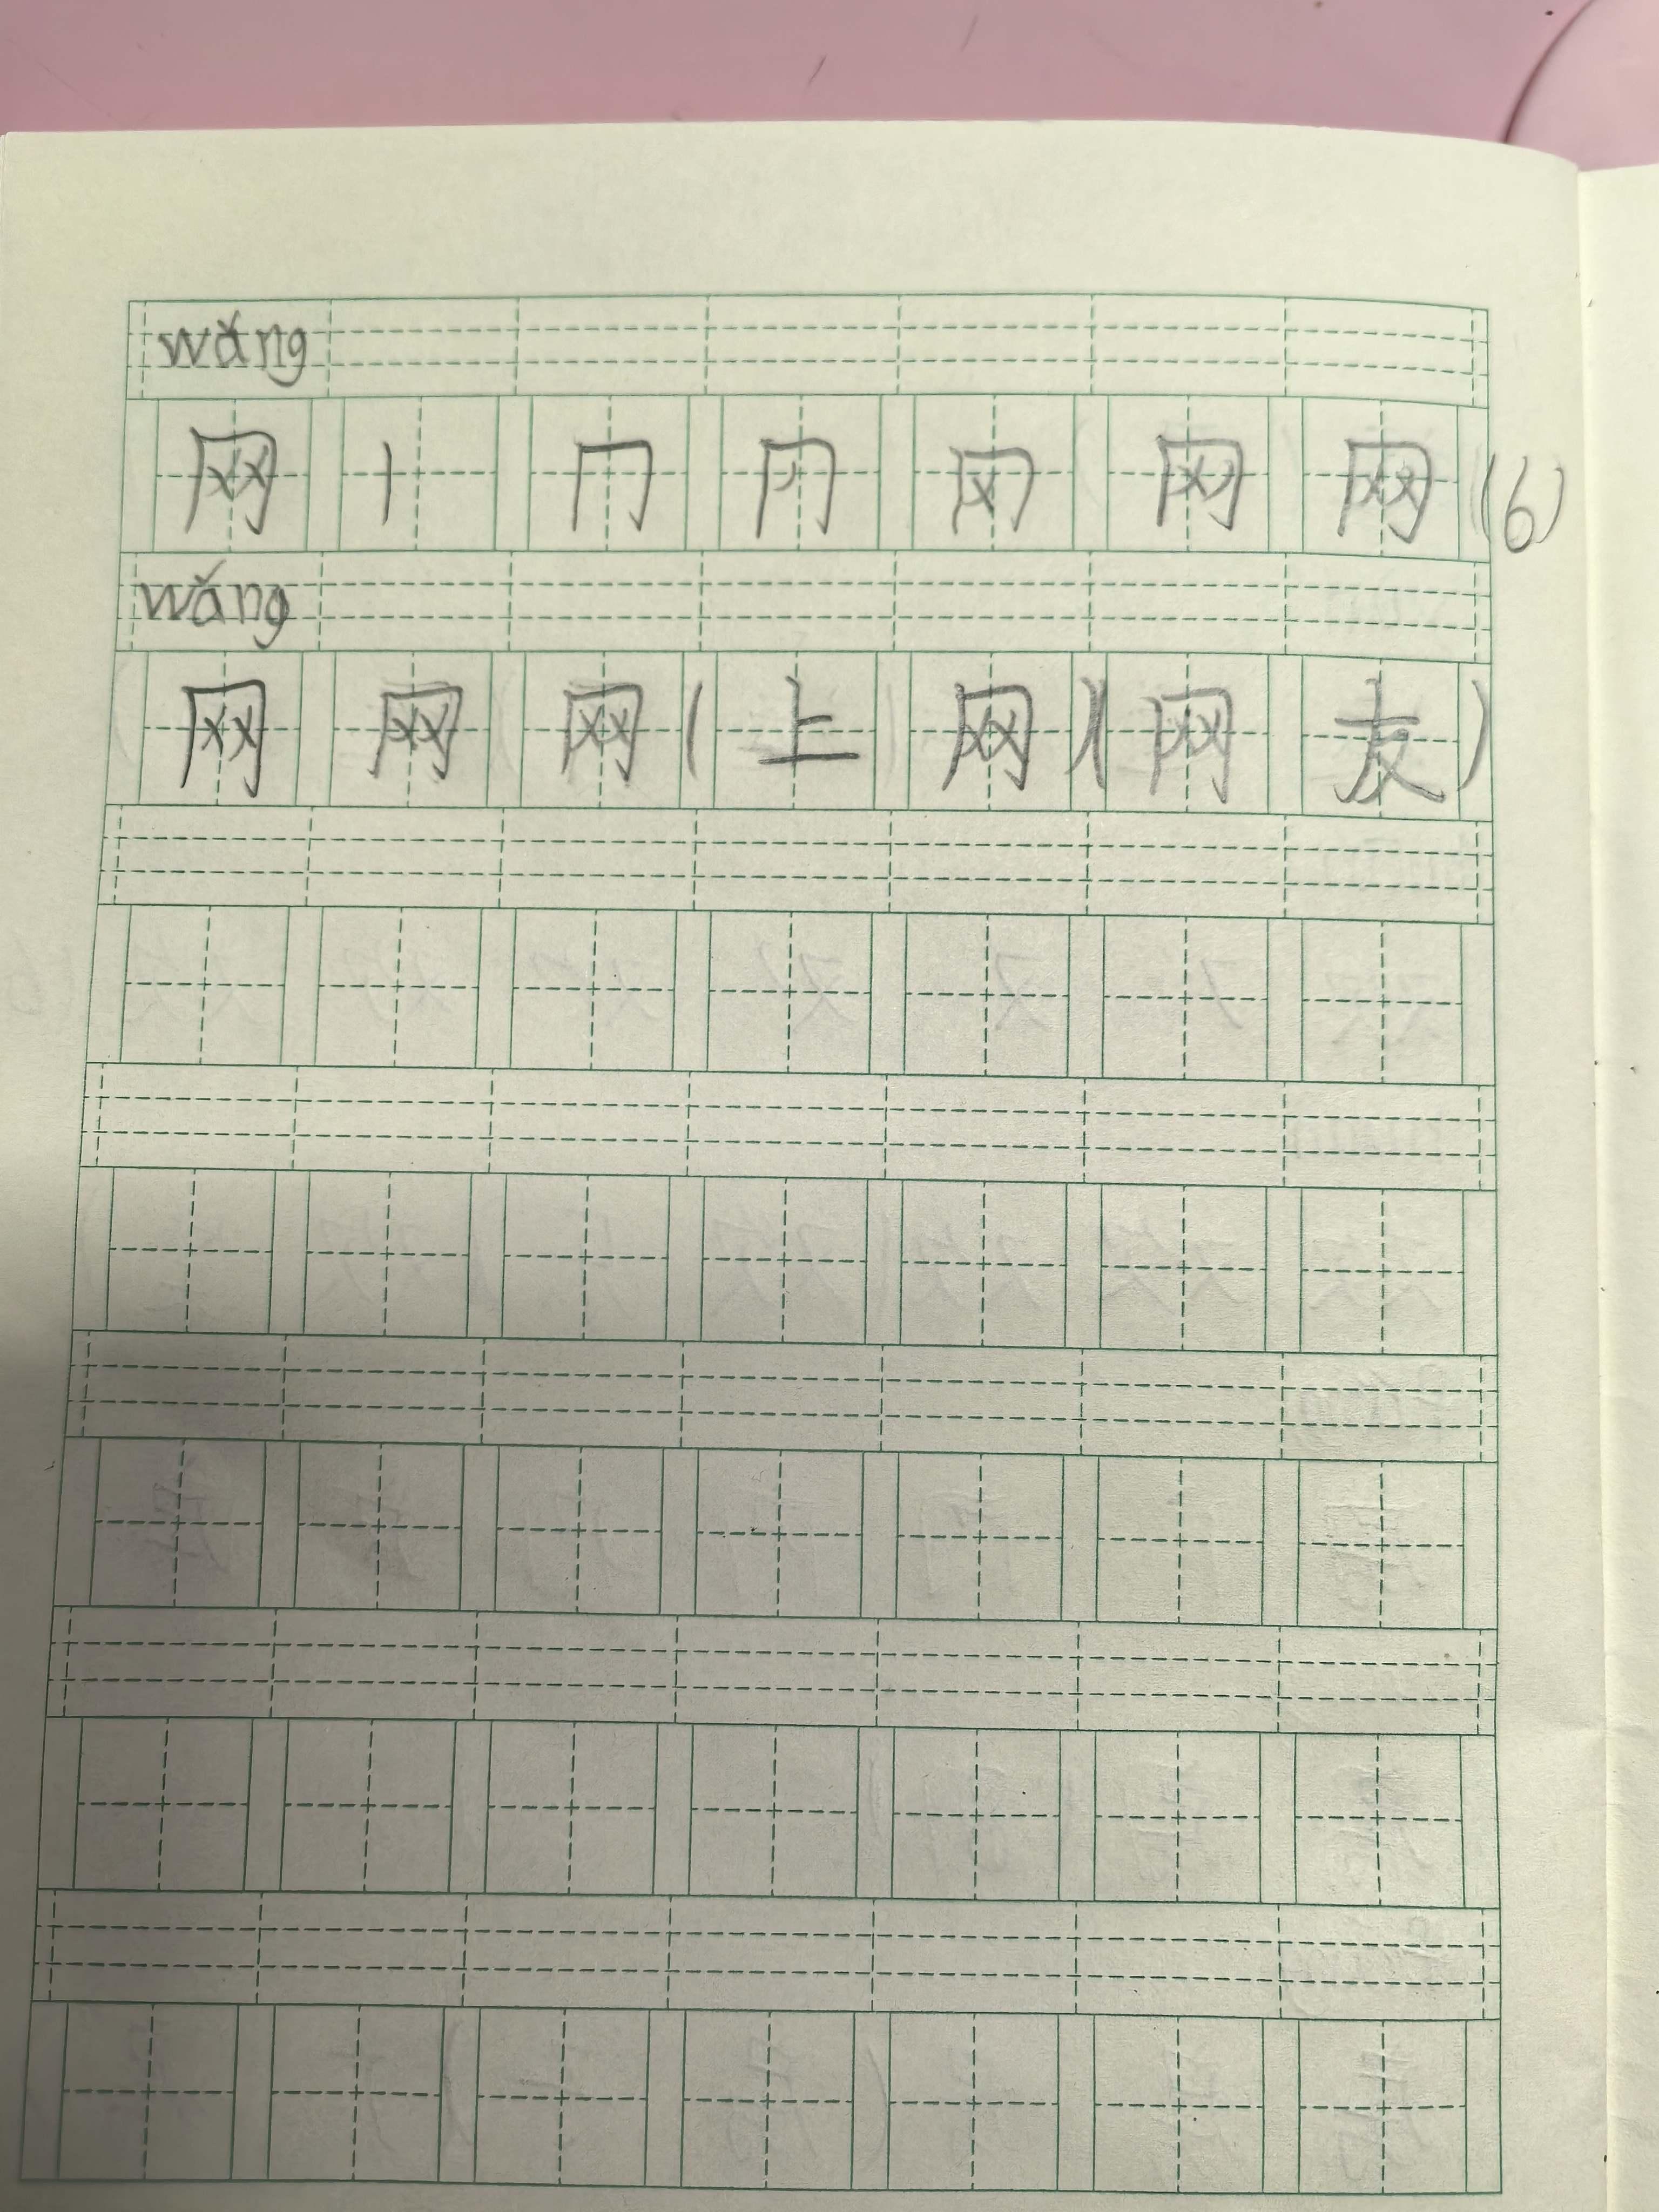 wǎng
网丨冂冂冈网网(6)
wǎng
网网网(上网)(网友)